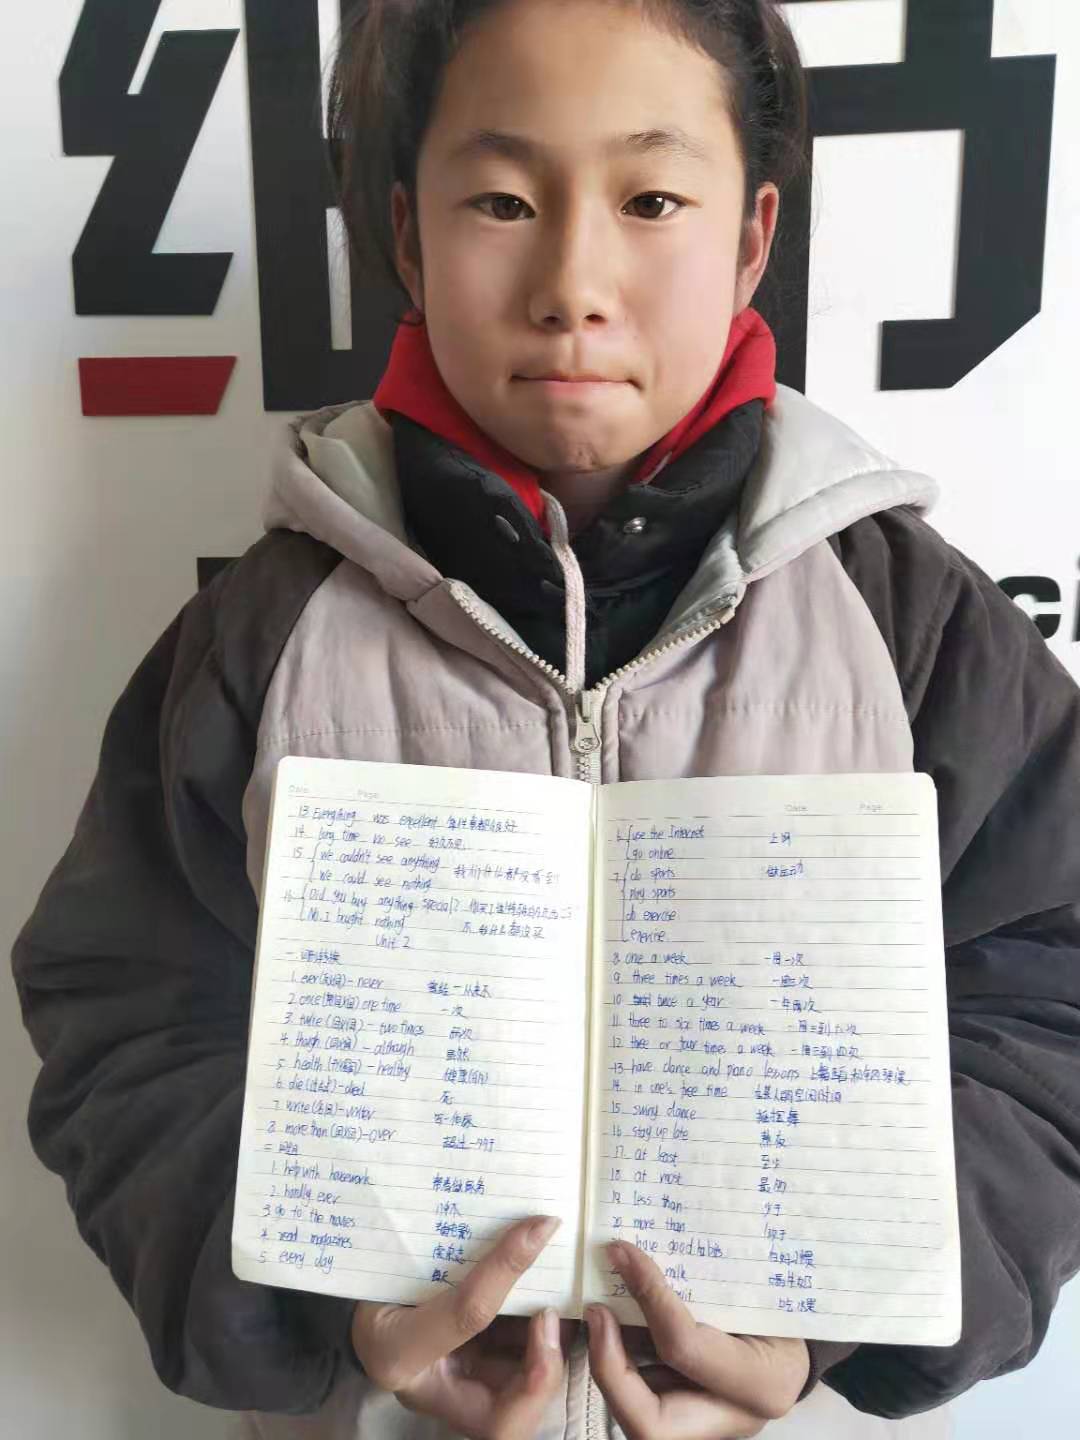 细节
ci
Date Page
13 Everything was excellent 每件事都很好
14. long time no see 好久不见.
15. we couldn't see anything 我们什么都没看到
we could see nothing
16. Did you buy anything special?
No, I bought nothing 不,我什么都没买
Unit 2
一.词性转换
1. ever(反词) - never 曾经 - 从来不
2. once(同义词) one time 一次
3. twice (同义词) - two times 两次
4. though (同义词) - although 虽然
5. health (形容词) - healthy 健康(的)
6. die(过去式) - died 死
7. write(名词) - writer 写 - 作家
8. more than (同义词) - over 超过
二
1. help with housework 帮着做家务
2. hardly ever 几乎不
3. go to the movies 看电影
4. read magazines 读杂志
5. every day 每天
Date Page
6. use the Internet 上网
go online
7. do sports 做运动
play sports
do exercise
exercise
8 one a week 一周一次
9. three times a week 一周三次
10 twice a year 一年两次
11 three to six times a week 一周三到六次
12 three or four times a week 一周三到四次
13 have dance and piano lessons 上舞蹈和钢琴课
14. in one's free time 在某人的空闲时间
15 swing dance 摇摆舞
16 stay up late 熬夜
17. at least 至少
18 at most 最多
19 less than 少于
20. more than 多于
have good habits 有好习惯
milk 喝牛奶
23 吃水果